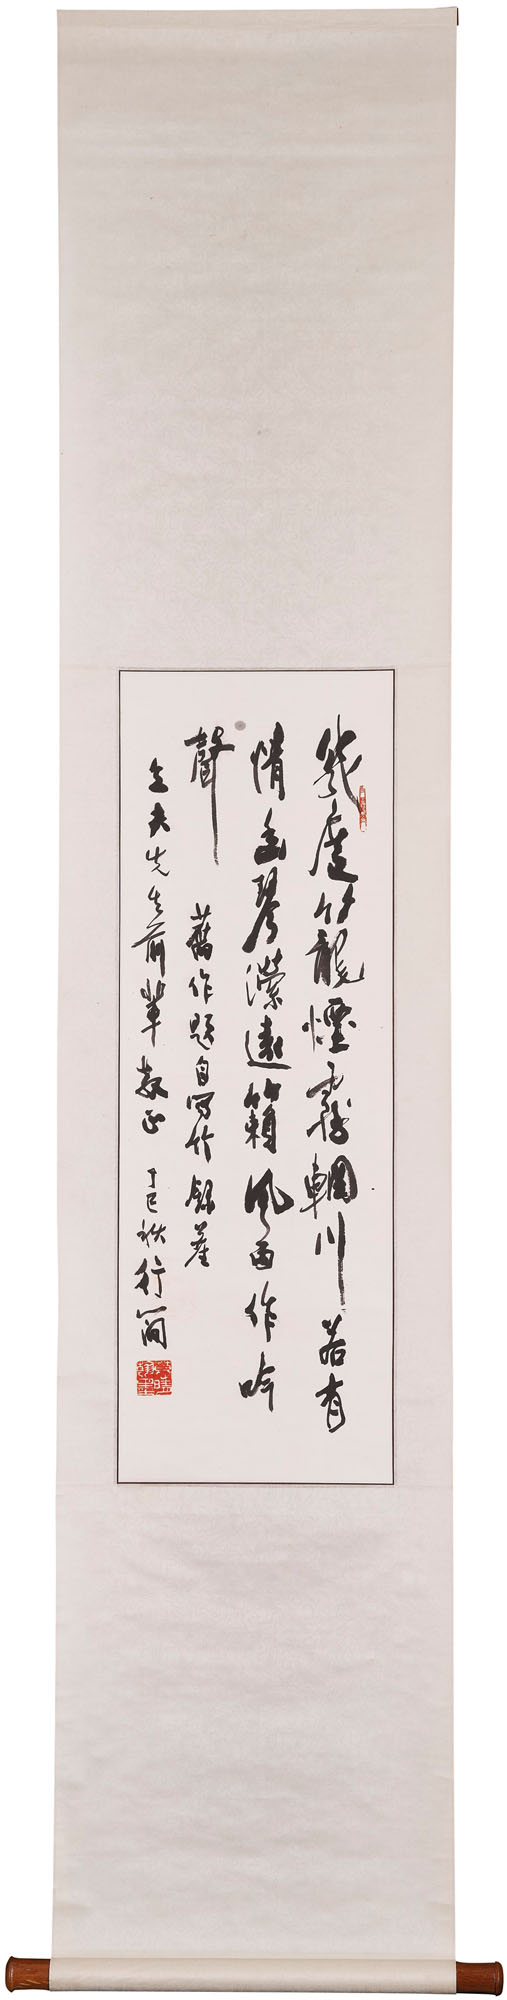 幾處竹籠煙霧輞川若有
情幽琴瀠遠籟風雨作吟
聲
舊作題自寫竹錄奉
立夫先生前輩教正 丁巳秋行簡